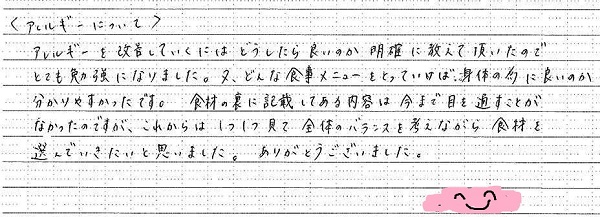 〈アレルギーについて〉
アレルギーを改善していくにはどうしたら良いのか 明確に教えて頂いたので
とても勉強になりました。又、どんな食事メニューをとっていけば、身体の為に良いのか
分かりやすかったです。 食材の裏に記載してある内容は今まで目を通すことが
なかったのですが、これからは1つ1つ見て全体のバランスを考えながら食材を
選んでいきたいと思いました。 ありがとうございました。